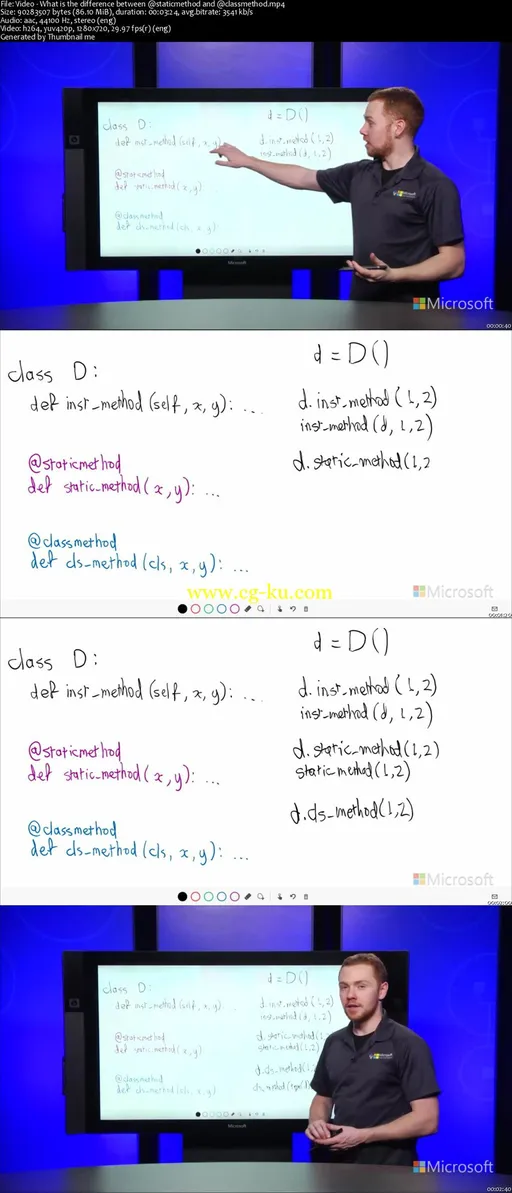 File: Video - What is the difference between @staticmethod and @classmethod.mp4
Size: 90283507 bytes (86.10 MiB), duration: 00:03:24, avg.bitrate: 3541 kb/s
Audio: aac, 44100 Hz, stereo (eng)
Video: h264, yuv420p, 1280x720, 29.97 fps(r) (eng)
Generated by Thumbnail me
class D:
def inst_method(self, x, y)
@staticmethod
def static_method(x, y)
@classmethod
def cls_method(cls, x, y)
d = D()
d.inst_method(1,2)
inst_method(d, 1,2)
Microsoft
Microsoft
00:00:40
class D:
def inst_method(self, x, y): ...
@staticmethod
def static_method(x, y): ...
@classmethod
def cls_method(cls, x, y): ...
d = D()
d.inst_method(1,2)
inst_method(d, 1,2)
d.static_method(1,2
Microsoft
www.cg-ku.com
class D:
def inst_method(self, x, y): ...
@staticmethod
def static_method(x, y): ...
@classmethod
def cls_method(cls, x, y): ...
d = D()
d.inst_method(1,2)
inst_method(d, 1,2)
d.static_method(1,2)
static_method(1,2)
d.cls_method(1,2)
Microsoft
class D:
def inst_method(self, x, y): ...
@staticmethod
def static_method(x, y)
@classmethod
def cls_method(cls, x, y)
d = D()
d.inst_method(1,2)
inst_method(d, 1,2)
d.static_method(1,
static_method(1,2)
d.cls_method(1,
Microsoft
Microsoft
00:02:40